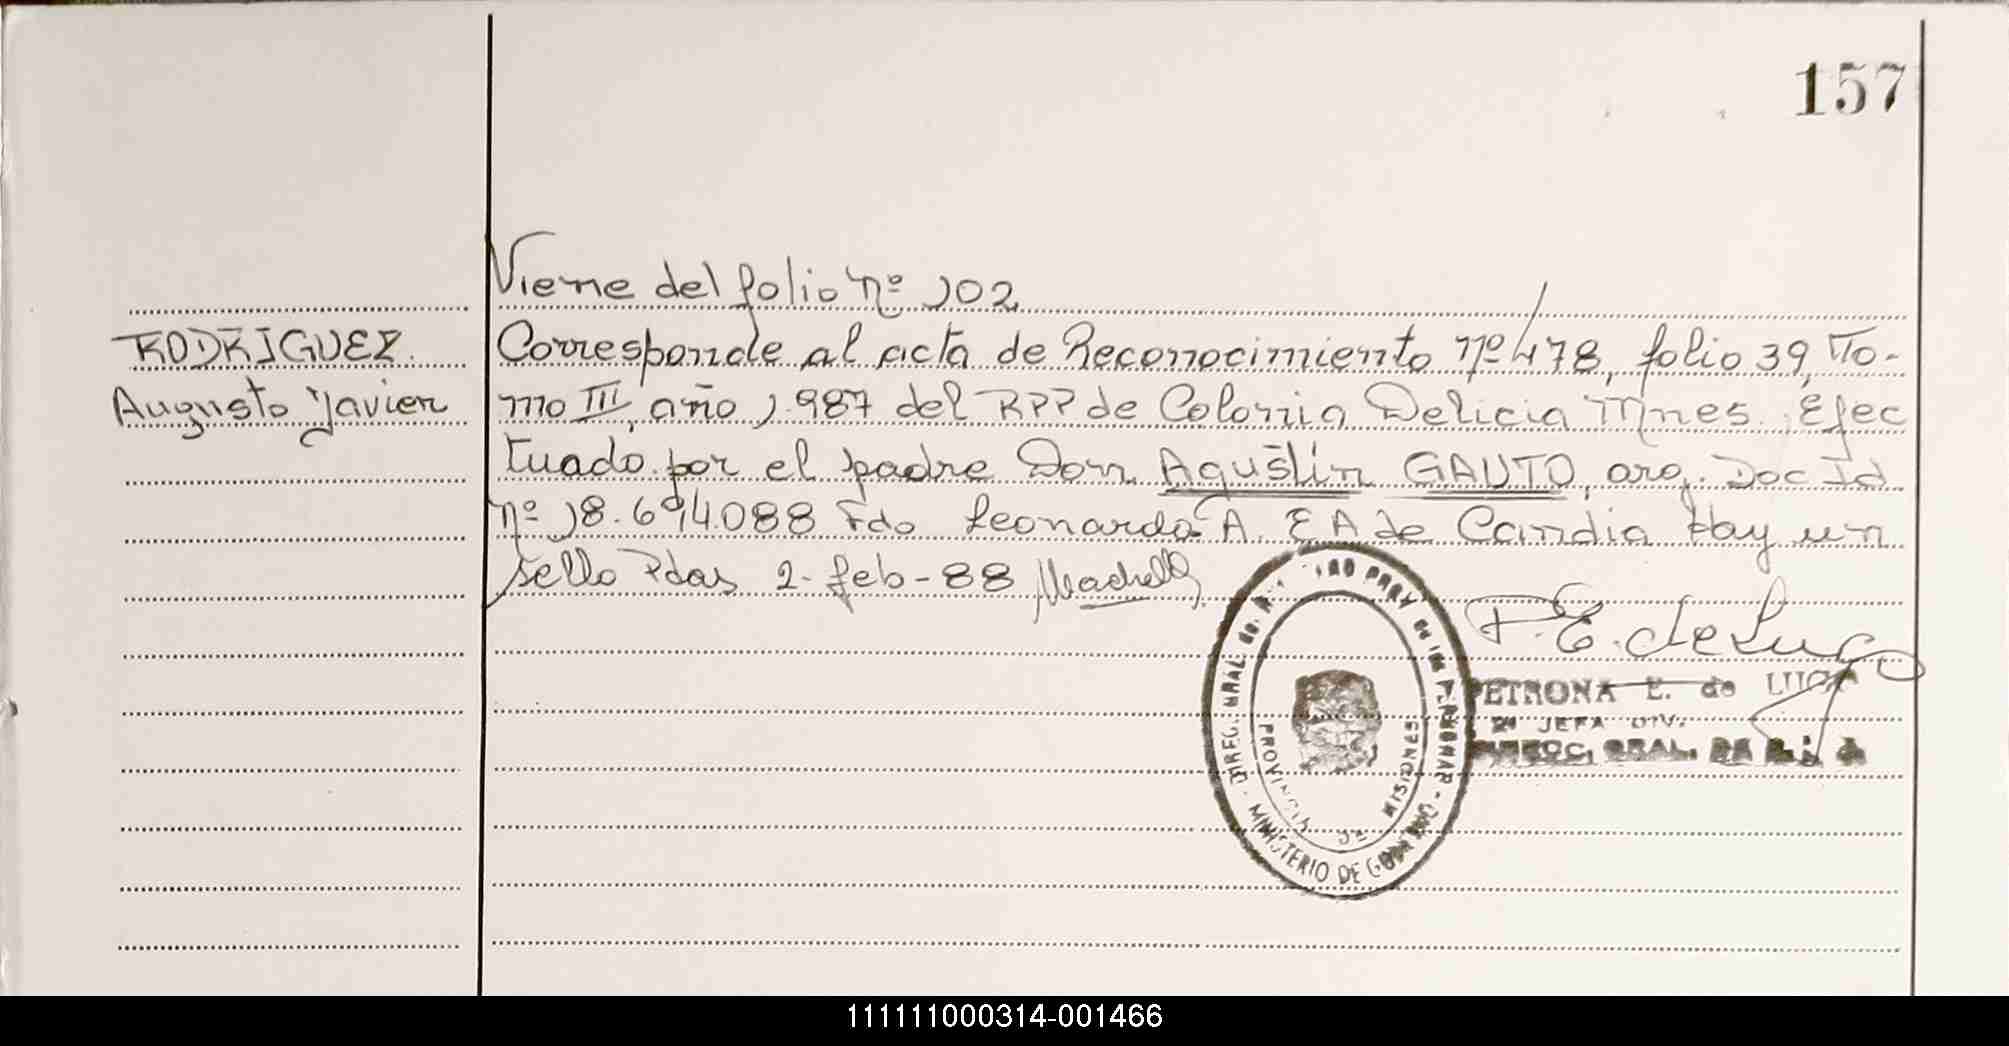 157
Viene del folio nº 102
RODRIGUEZ
Augusto Javier
Corresponde al acta de Reconocimiento nº 478, folio 39, To-
mo III, año 1.987 del RPP de Colonia Delicia Mnes. Efec
tuado por el padre Don Agustin GAUTO, arg. Doc Id
nº 18.694088 Fdo Leonarda A. E A de Candia Hay un
sello Pdas 2-feb-88
P.E. de Lugo
PETRONA E. de LUGO
2ª JEFA DIV.
DIRECC. GRAL. DE
DIREC. GRAL. de PROV de las PERSONAS - MINISTERIO DE GOBIERNO -
PROVINCIA DE MISIONES
111111000314-001466